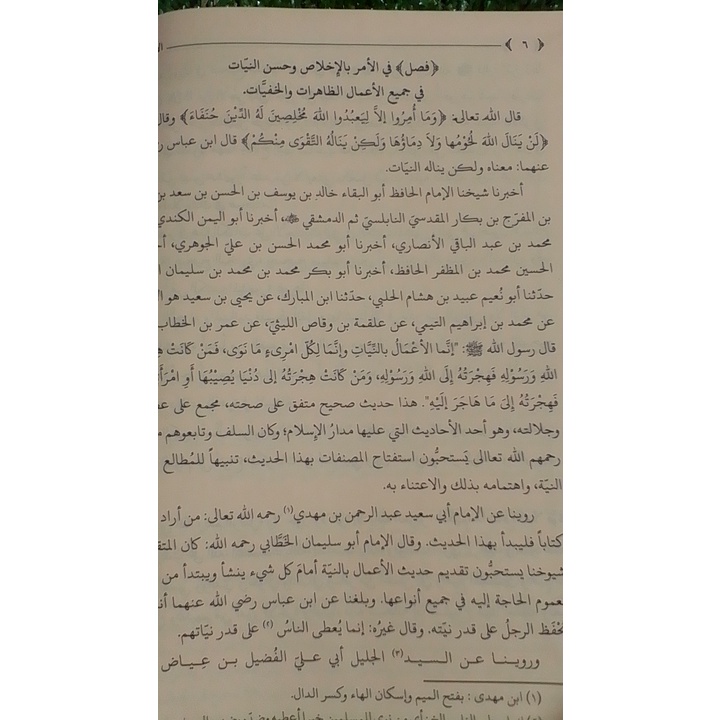 ﴿ ٦ ﴾
﴿فصل﴾ في الأمر بالإخلاص وحسن النيّات
في جميع الأعمال الظاهرات والخفيَّات.
قال الله تعالى: ﴿وَمَا أُمِرُوا إلاَّ لِيَعبُدُوا اللهَ مُخْلِصِينَ لَهُ الدِّيْنَ حُنَفَاءَ﴾ وقال
﴿لَنْ يَنَالَ اللهَ لُحُومُها وَلاَ دِمَاؤُهَا وَلَكِنْ يَنَالُهُ التَّقْوَى مِنْكُمْ﴾ قال ابن عباس
عنهما: معناه ولكن يناله النيّات.
أخبرنا شيخنا الإمام الحافظ أبو البقاء خالد بن يوسف بن الحسن بن سعد بن
بن المفرّج بن بكار المقدسيّ النابلسيّ ثم الدمشقي ﷺ، أخبرنا أبو اليمن الكندي
محمد بن عبد الباقي الأنصاري، أخبرنا أبو محمد الحسن بن عليّ الجوهري،
الحسين محمد بن المظفر الحافظ، أخبرنا أبو بكر محمد بن محمد بن سليمان
حدّثنا أبو نُعيم عبيد بن هشام الحلبي، حدّثنا ابن المبارك، عن يحيى بن سعيد هو
عن محمد بن إبراهيم التيمي، عن علقمة بن وقاص الليثيّ، عن عمر بن الخطاب
قال رسول الله ﷺ: "إنَّما الأعْمَالُ بالنّيَّاتِ وإنَّمَا لِكُلِّ امْرِىءٍ مَا نَوَى، فَمَنْ كَانَتْ
اللهِ وَرَسُوْلِهِ فَهِجْرَتُهُ إِلَى اللهِ وَرَسُوْلِهِ، وَمَنْ كَانَتْ هِجْرَتُهُ إلى دُنْيَا يُصِيْبُهَا أَوِ
فَهِجْرَتُهُ إِلىَ مَا هَاجَرَ إِلَيْهِ". هذا حديث صحيح متفق على صحته، مجمع على
وجلالته، وهو أحد الأحاديث التي عليها مدارُ الإِسلام؛ وكان السلف وتابعوهم
رحمهم الله تعاالى يَستحبُّون استفتاح المصنفات بهذا الحديث، تنبيهاً للمُطالع
النيّة، واهتمامه بذلك والاعتناء به.
روينا عن الإمام أبي سعيد عبد الرحمن بن مهدي(١) رحمه الله تعالى: من أراد
كتاباً فليبدأ بهذا الحديث. وقال الإمام أبو سليمان الخَطَّابي رحمه الله: كان
شيوخنا يستحبُّون تقديم حديث الأعمال بالنيّة أمامَ كل شيء ينشأ ويبتدأ من
لعموم الحاجة إليه في جميع أنواعها. وبلغنا عن ابن عباس رضي الله عنهما
يُحْفَظ الرجلُ على قدر نيّته. وقال غيرُه: إنما يُعطى الناسُ (٢) على قدر نيّاتهم.
وروينا عن السيد(٣) الجليل أبي عليّ الفُضيل بن عِياض
(١) ابن مهدى : بفتح الميم وإسكان الهاء وكسر الدال.